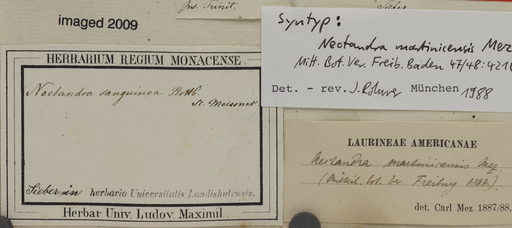 imaged 2009
Ins. Trinit.
Sieber
Syntyp:
Nectandra martinicensis Mez
Mitt. Bot. Ver. Freib. Baden 47/48: 421
Det. - rev. J. Rohwer München 1988
HERBARIUM REGIUM MONACENSE.
Nectandra sanguinea Rottb.
Meissner
Sieber in herbario Universitatis Landishutensis.
Herbar Univ. Ludov. Maximil.
LAURINEAE AMERICANAE
Nectandra martinicensis Mez
(Mitteil. bot. Ver. Freiburg 1888).
det. Carl Mez 1887/88.